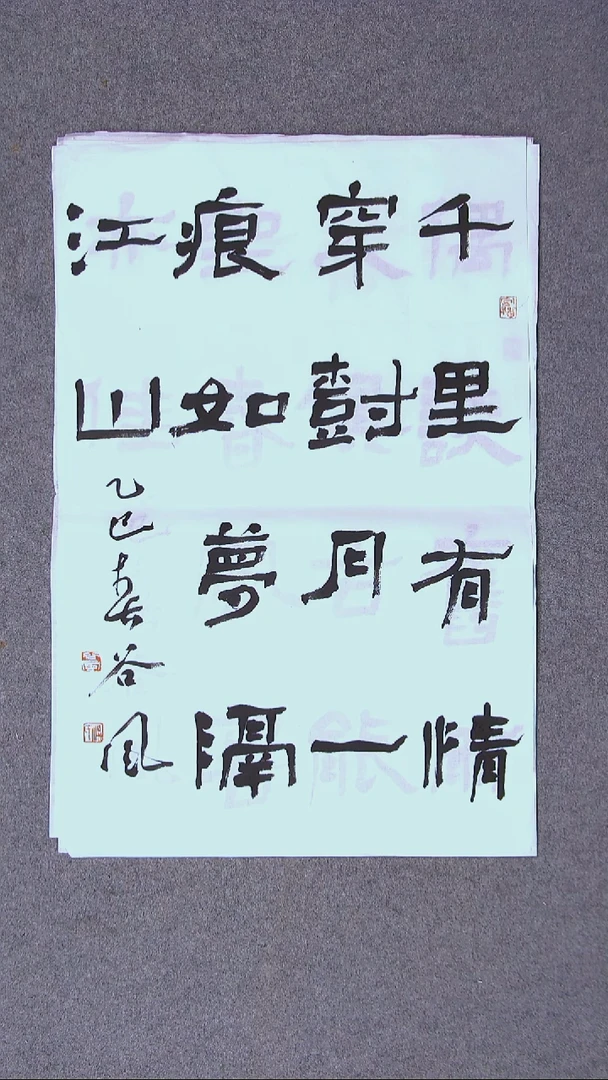 千里有情
穿樹月一
痕如夢隔
江山
乙巳春长谷风